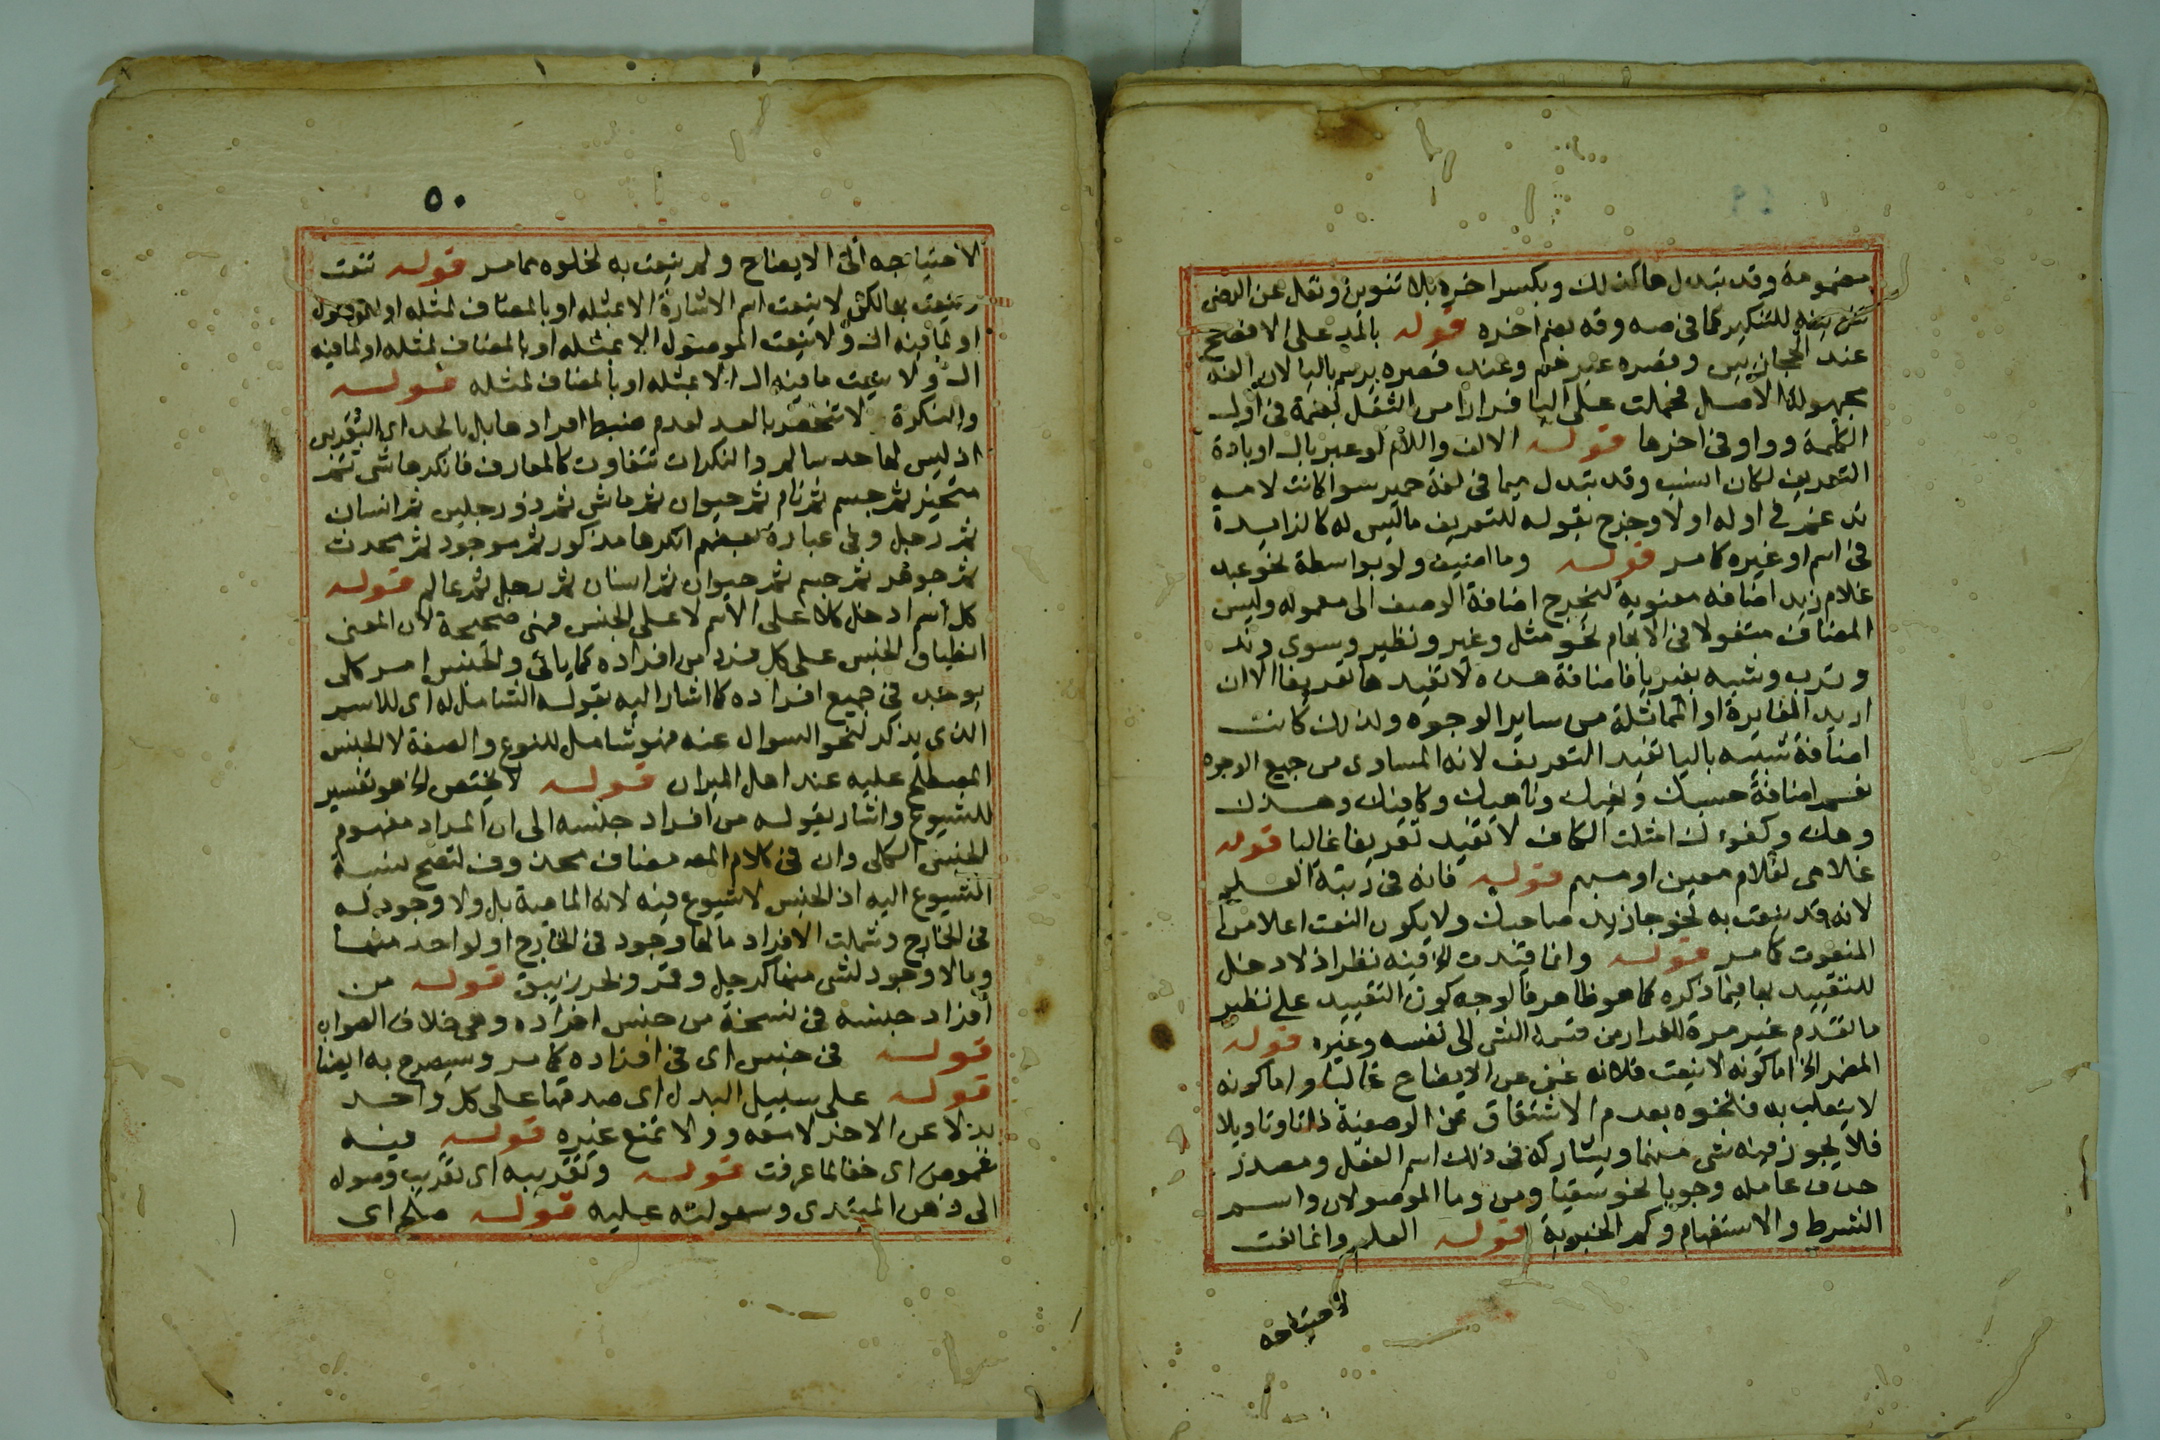 مضمومة وقد تبدل هاكذلك وبكسر اخره بلا تنوين ونقل عن الرضى
تنوينه للتنكير كما في صه وقد يضم اخره قوله بالمد على الافصح
عند الحجازيين وقصره عند غيرهم وعند قصره يرسم باليا لان الفه
مجهولة الاصل فحملت على اليا فرارا من الثقل بضمة في اول
الكلمة وواو في اخرها قوله الالف واللام لو عبر بال او باداة
التعريف لكان انسب وقد تبدل ميما في لغة حمير سوا كانت لامه
تدغم في اوله اولا وخرج بقوله للتعريف ما ليس له كالزايدة
في اسم او غيره كما مر قوله وما اضيف ولو بواسطة نحو عبد
غلام زيد اضافة معنوية ليخرج اضافة الوصف الى معموله وليس
المضاف متغولا في الابهام نحو مثل وغير ونظير وسوى وند
وترب وشبه بغير يا فاضافة هذه لا تفيدها تعريفا الا ان
اريد المغايرة او المماثلة من ساير الوجوه ولذلك كانت
اضافة شبيه باليا تفيد التعريف لانه المساوى من جميع الوجوه
نعم اضافة حسبك وناهيك وكافيك وهدك
وكفوء لك الكاف لا تفيد تعريفا غالبا قوله
غلامى لغلام معين او مبهم قوله فانه في رتبة العلم
لانه قد ينعت به نحو جا زيد صاحبك ولا يكون النعت اعلا من
المنعوت كما مر قوله وانما قيدت الخ فيه نظر اذ لا دخل
للتقييد بها فيما ذكره كما هو ظاهر فالوجه كون التقييد على نظير
ما تقدم غير مرة للفرار من قسمة الشى الى نفسه وغيره قوله
المضمر الخ اما كونه لا ينعت فلانه غنى عن الايضاح غالبا واما كونه
لا ينعت به فلنحوه بعدم الاشتقاق عن الوصفية ذاتا وتاويلا
فلا يجوز فيه شى منهما ويشاركه في ذلك اسم الفعل ومصدر
حذف عامله وجوبا نحو سقيا ومن وما الموصولان واسم
الشرط والاستفهام وكم الخبرية قوله العلم وانما نعت
لاحتياجه
٥٠
لاحتياجه الى الايضاح ولم ينعت به لخلوه مما مر قوله تنعت
وينعت بها لكن لا ينعت اسم الاشارة الا بمثله او بالمضاف لمثله او للموصول
او لما فيه ال ولا ينعت الموصول الا بمثله او بالمضاف لمثله او لما فيه
ال ولا ينعت ما فيه ال الا بمثله او بالمضاف لمثله قوله
والنكرة لا تنحصر بالعد لعدم ضبط افرادها بل بالحد اى التقريبى
اذ ليس لها حد سالم والنكرات تتفاوت كالمعارف فانكرها شى ثم
متحيز ثم جسم ثم نام ثم حيوان ثم ماش ثم ذو رجلين ثم انسان
ثم رجل وفى عبارة بعضهم انكرها مذكور ثم موجود ثم محدث
ثم جوهر ثم جسم ثم حيوان ثم انسان ثم رجل ثم عالم قوله
كل اسم ادخل كلا على الاسم لا على الجنس فهى صحيحة لان المعنى
انطباق الجنس على كل فرد من افراده كما ياتى والجنس امر كلى
يوجد في جميع افراده كما اشار اليه بقوله الشامل له اى للاسم
الذى يذكر لنحو السوال عنه فهو شامل للنوع والصفة لا الجنس
المصطلح عليه عند اهل الميزان قوله لا يختص الخ هو تفسير
للشيوع واشار بقوله من افراد جنسه الى ان المراد مفهوم
الجنس الكلى وان في كلام المصـ مضاف محذوف لتصح نسبة
الشيوع اليه اذ الجنس لا شيوع فيه لانه الماهية بل ولا وجود له
في الخارج وشملت الافراد ما لها وجود في الخارج او لواحد منها
وما لا وجود لشى منها كرجل وقمر وبحر زيبق قوله من
افراد جنسه في نسخة من جنس افراده وهى خلاف الصواب
قوله في جنس اى في افراده كما مر وسيصرح به ايضا
قوله على سبيل البدل اى صدقها على كل واحد
بدلا عن الاخر لا معه ولا تمنع غيره قوله فيه
غموض اى خفا لما عرفت قوله وتقريبه اى تقرب وصوله
الى ذهن المبتدى وسهولته عليه قوله صلح اى